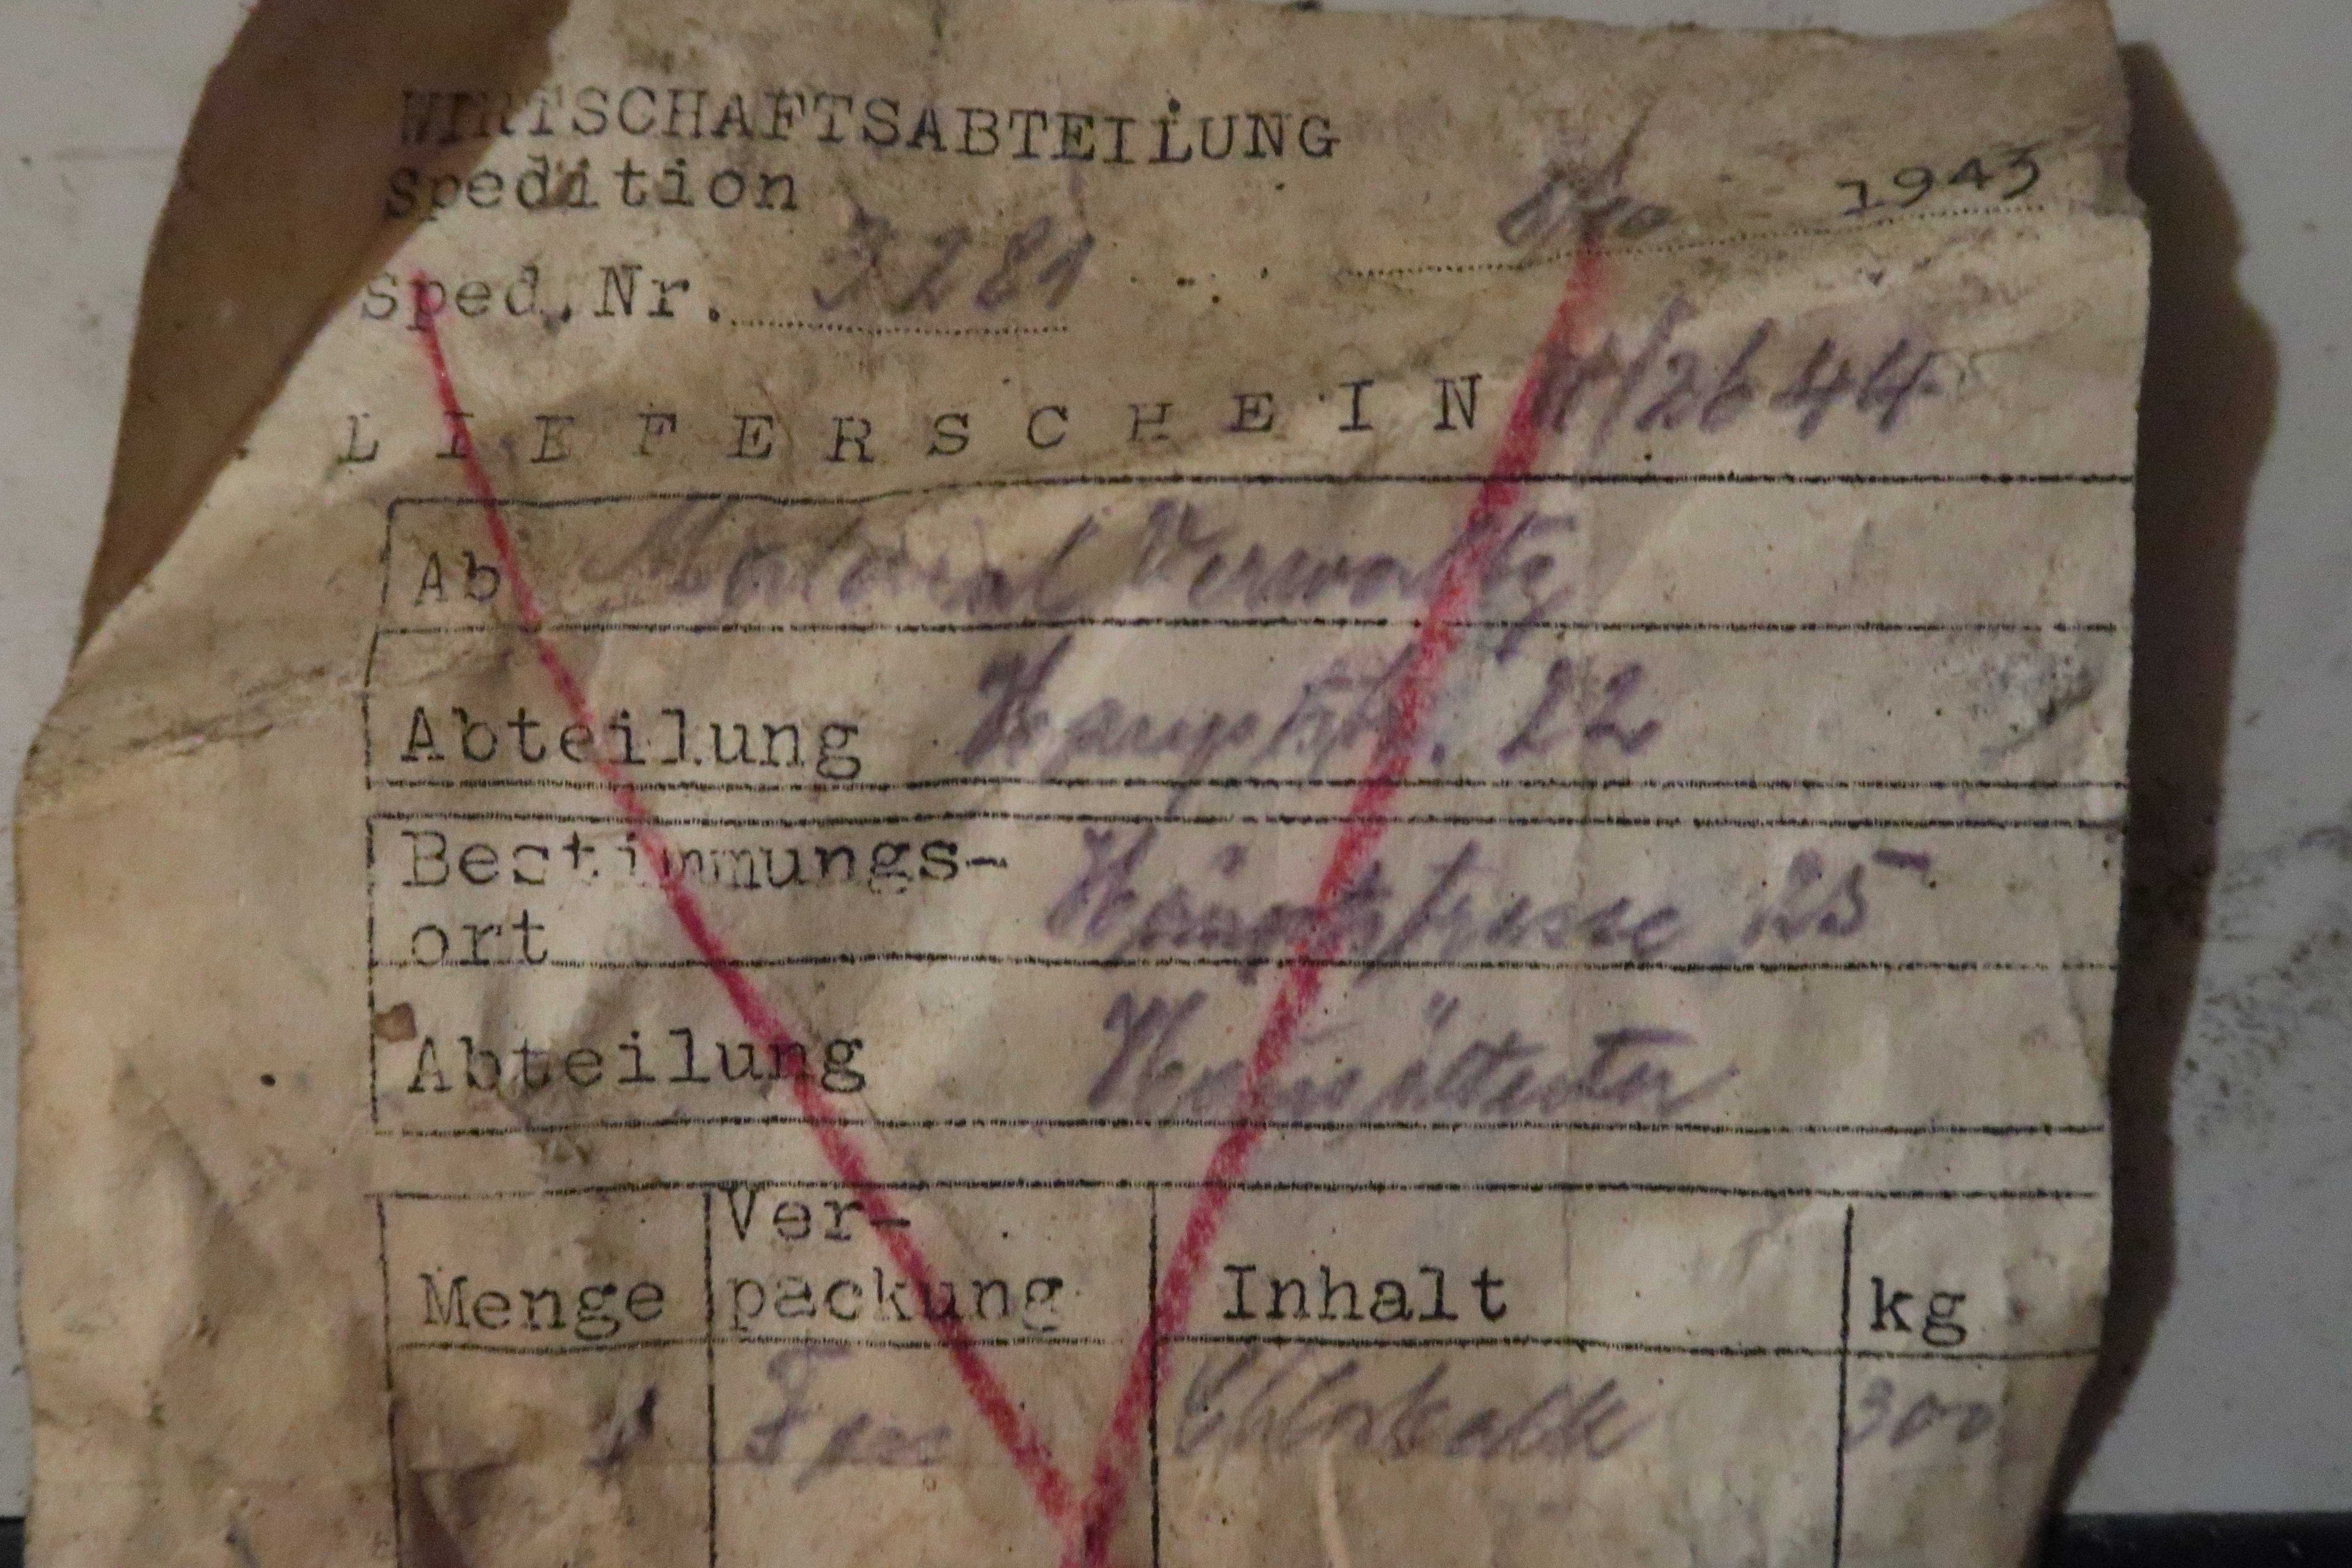 WIRTSCHAFTSABTEILUNG
Spedition
1943
Sped.Nr. 3281
LIEFERSCHEIN /2644
Ab Material Verwaltg
Abteilung Hauptstr. 22
Bestimmungs-
ort Hauptstrasse 25
Abteilung Hausältester
Menge Ver-
packung Inhalt kg
1 Chlorkalk 300